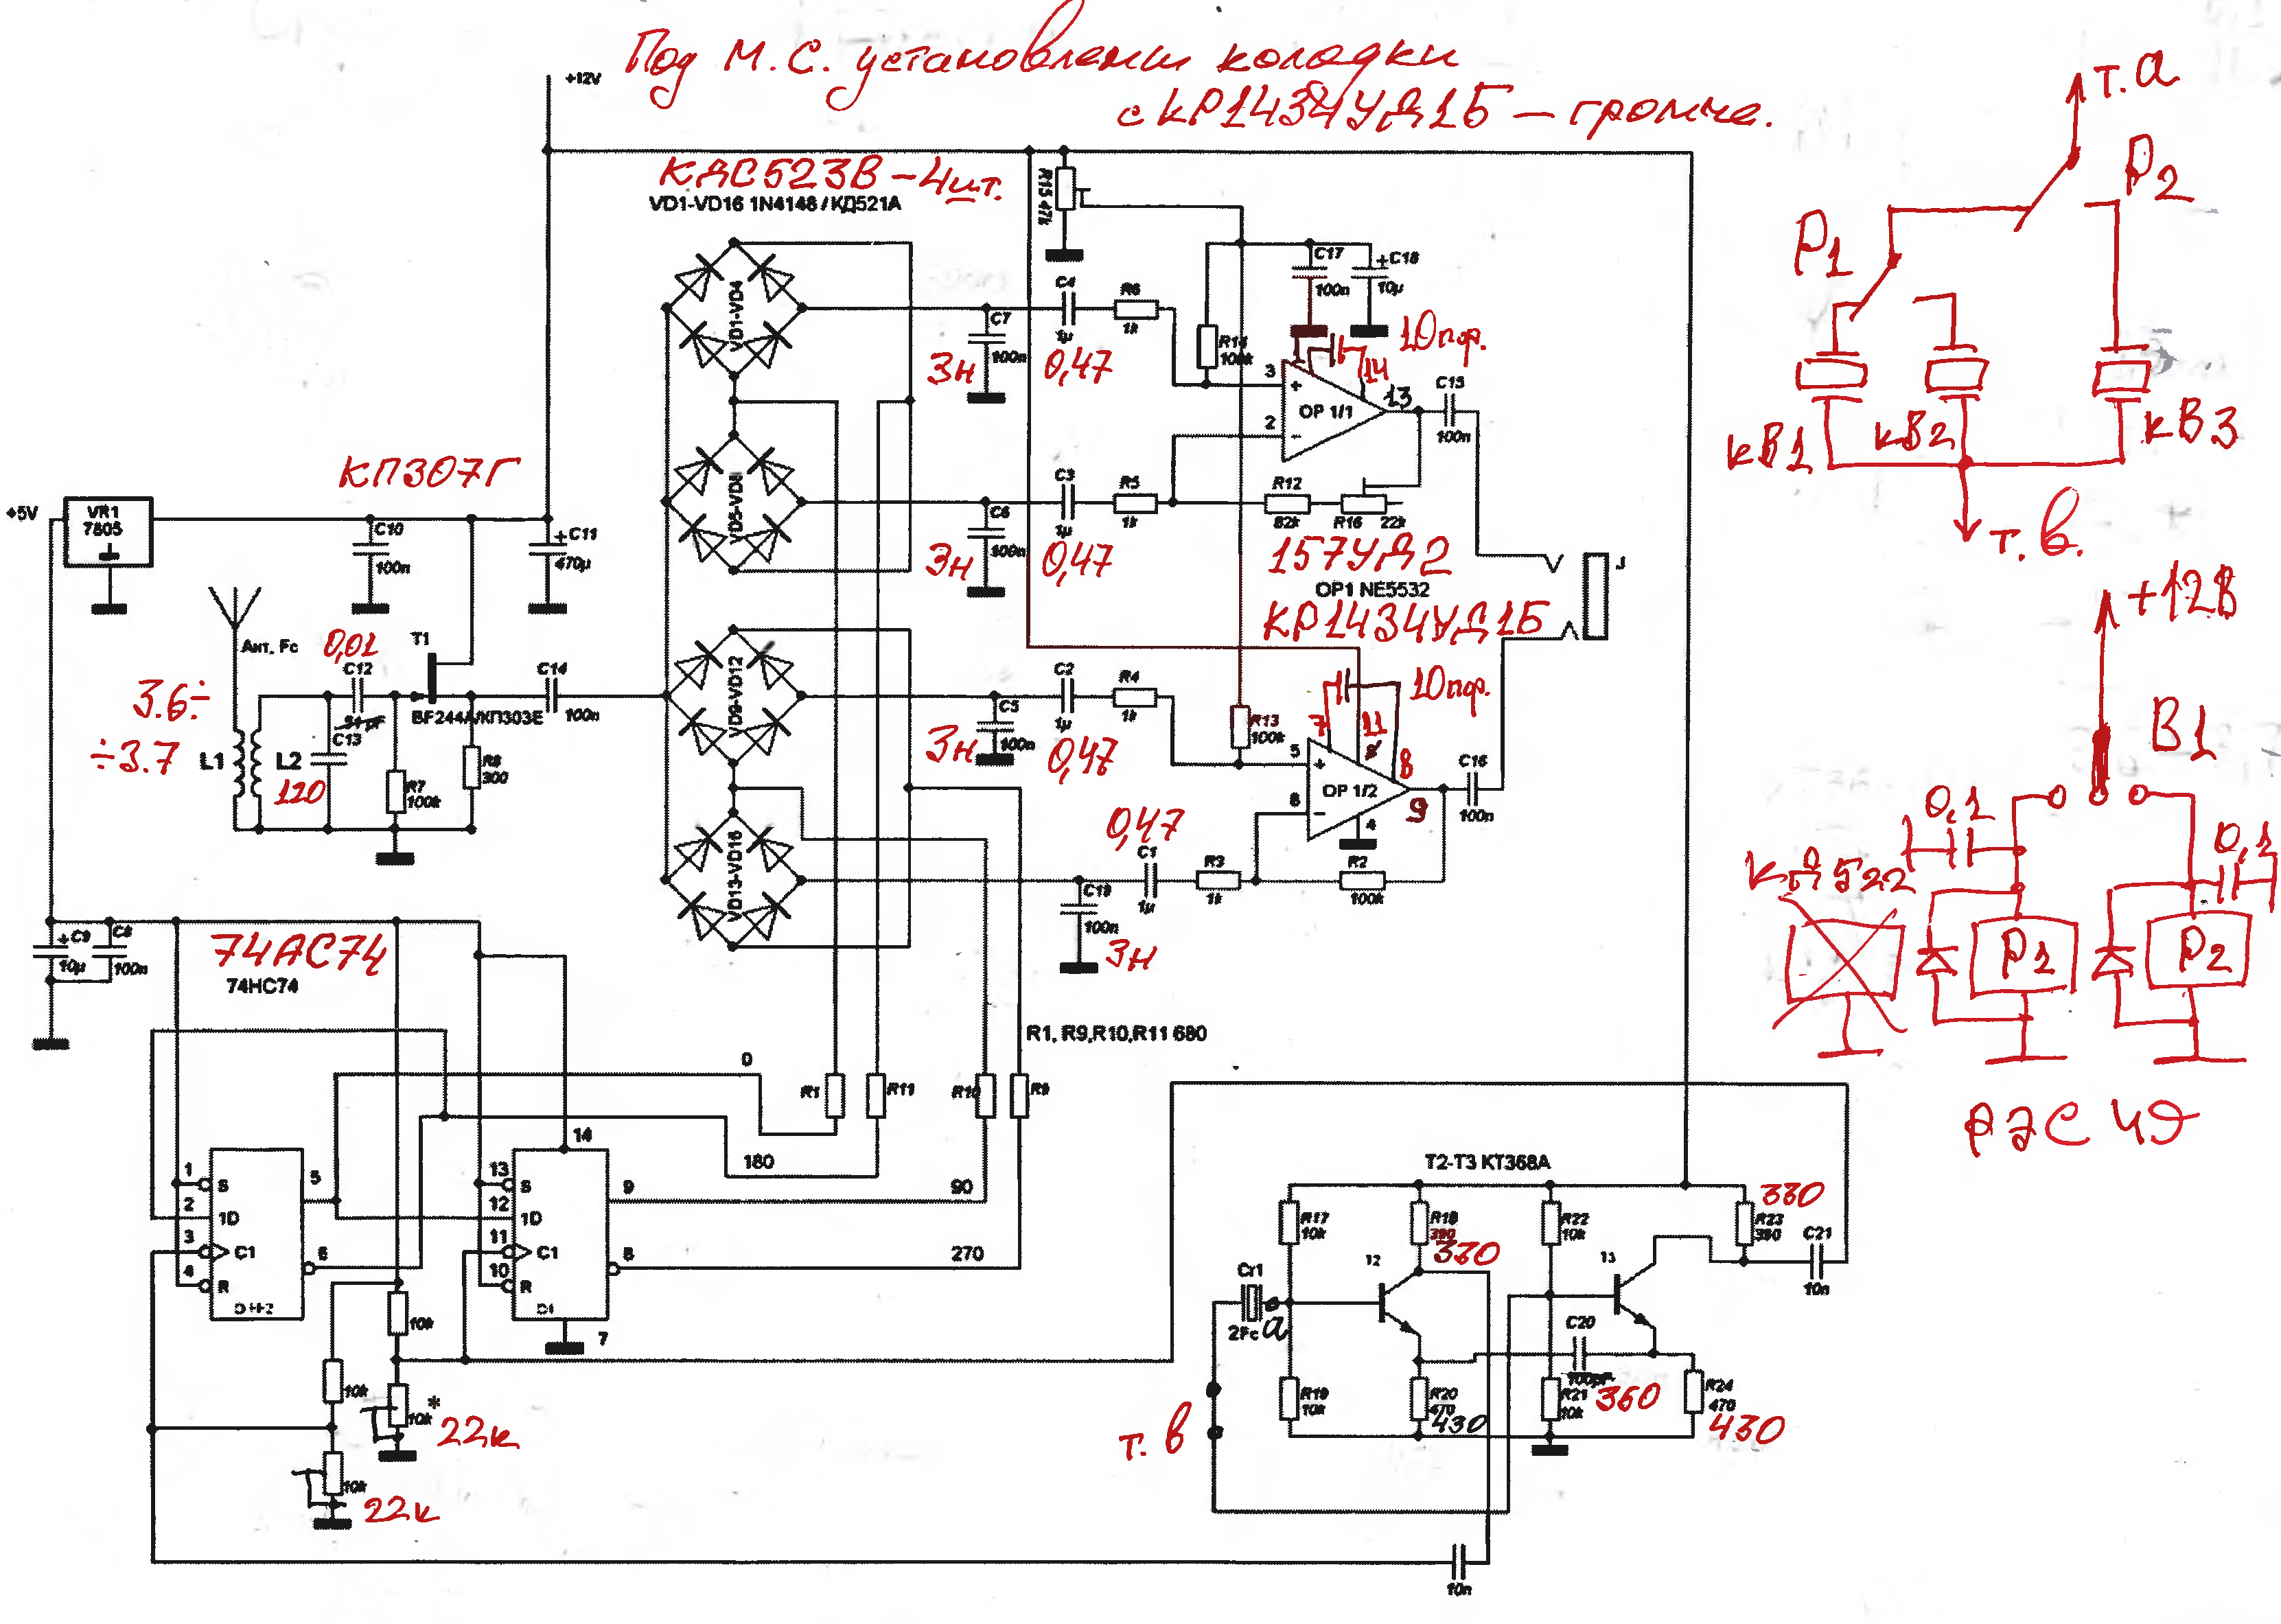 Под М.С. установлены колодки
с КР1434УД1Б – громче.
+12V
КДС523В – 4шт.
VD1-VD16 1N4148 / КД521А
R15 47k
VD1-VD4
C7
100n
3н
C4
1µ
0,47
R6
1k
R14
100k
C17
100n
+C18
10µ
10пф.
14
3
+
2
–
OP 1/1
13
C15
100n
VD5-VD8
C6
100n
3н
C3
1µ
0,47
R5
1k
R12
82k
R16
22k
157УД2
OP1 NE5532
КР1434УД1Б
J
КП307Г
+5V
VR1
7805
C10
100n
+C11
470µ
Ант. Fc
0,01
C12
51pF
T1
BF244A/КП303Е
C14
100n
3.6÷
÷3.7
L1
L2
C13
120
R7
100k
R8
300
VD9-VD12
C5
100n
3н
C2
1µ
0,47
R4
1k
R13
100k
10пф.
7
11
8
8
5
+
6
–
OP 1/2
9
4
C16
100n
VD13-VD16
C19
100n
3н
0,47
C1
1µ
R3
1k
R2
100k
+C9
10µ
C8
100n
74АС74
74HC74
R1, R9,R10,R11 680
0
R1
R11
R10
R9
180
90
270
1
S
2
1D
3
C1
4
R
5
6
14
13
S
12
1D
11
C1
10
R
9
8
7
10k
10k
10k*
22к
10k
22к
T2-T3 КТ368А
R17
10k
R18
390
330
R22
10k
330
R23
390
C21
10n
Cr1
2Fc
а
T2
T3
R19
10k
R20
470
430
C20
100pF
360
R21
10k
R24
470
430
т. в
10n
т. а
Р1
Р2
кв1
кв2
кв3
т. в.
+12В
В1
0,1
0,1
КД522
Р1
Р2
РЭС 49